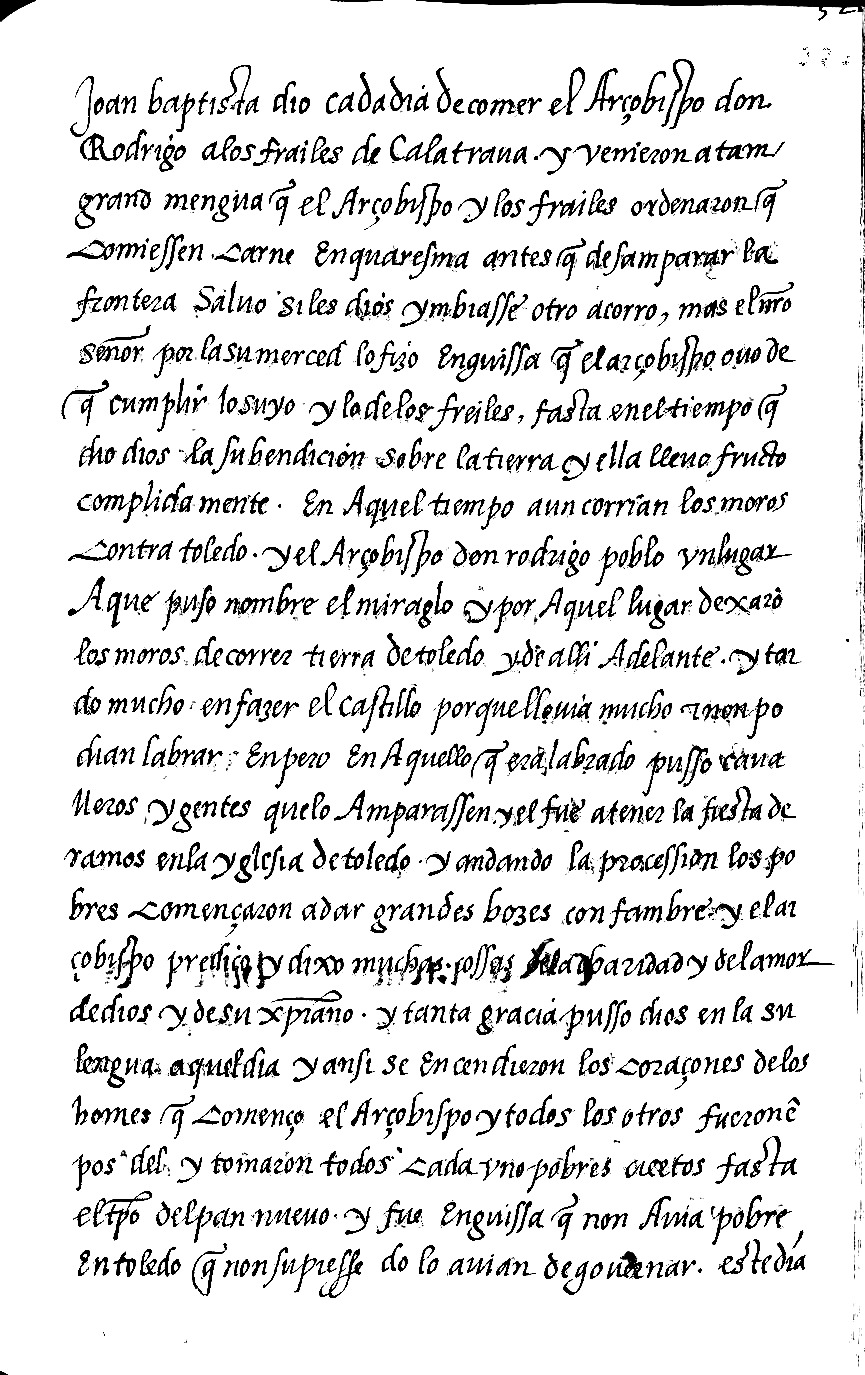 Joan baptista dio cada dia de comer el Arçobispo don
Rodrigo a los frailes de Calatraua. y venieron a tam
grand mengua q̃ el Arçobispo y los frailes ordenaron q̃
Comiessen Carne En quaresma antes q̃ desamparar la
frontera Saluo si les dios ymbiasse otro acorro, mas el nr̃o
señor por la su merced lo fizo En guissa q̃ el arçobispo ouo de
q̃ cumplir lo suyo y lo de los freiles, fasta en el tiempo q̃
dio dios la su bendicion sobre la tierra y ella lleuo fructo
complida mente. En Aquel tiempo aun corrian los moros
Contra toledo. y el Arçobispo don rodrigo poblo vn lugar
A que puso nombre el miraglo y por Aquel lugar dexarõ
los moros de correr tierra de toledo y de alli Adelante. y tar
do mucho en fazer el Castillo porque llouia mucho z non po
dian labrar. Enpero En Aquello q̃ era labrado pusso caua
lleros y gentes que lo Amparassen y el fue a tener la fiesta de
ramos en la yglesia de toledo. y andando la procession los po
bres Començaron a dar grandes bozes con fambre. y el ar
çobispo predico y dixo muchas cossas de la charidad y del amor
de dios y de su xp̃iano. y tanta gracia pusso dios en la su
lengua aquel dia y ansi se Encendieron los Coraçones de los
homes q̃ Començo el Arçobispo y todos los otros fueron ẽ
pos del y tomaron todos Cada vno pobres ciertos fasta
el tp̃o del pan nuevo. y fue En guissa q̃ non Auia pobre
En toledo q̃ non supiesse do lo auian de gouernar. este dia